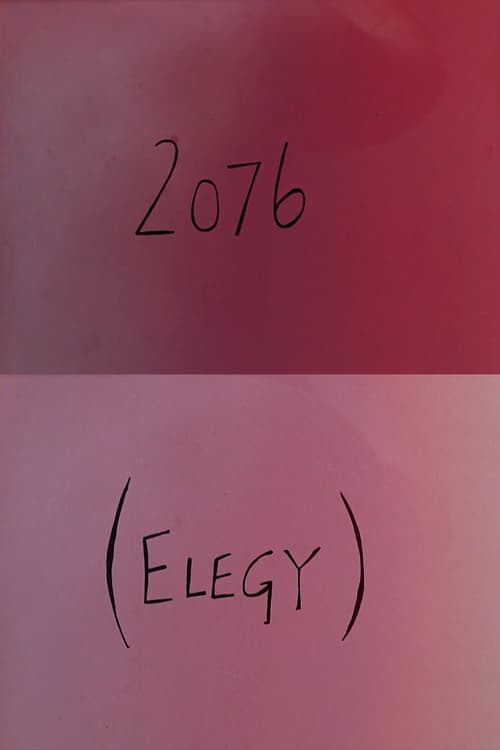 2076
(ELEGY)